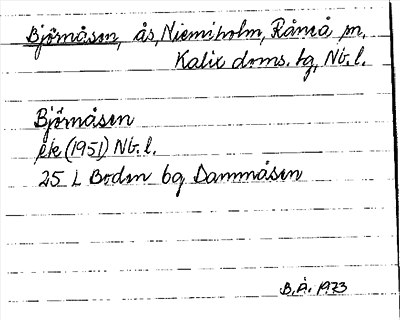 Björnåsen, ås, Niemiholm, Råneå sn,
Kalix doms. bg, Nb. l.
Björnåsen
ek (1951) Nb. l.
25 L Boden bg Dammåsen
B. Å. 1973